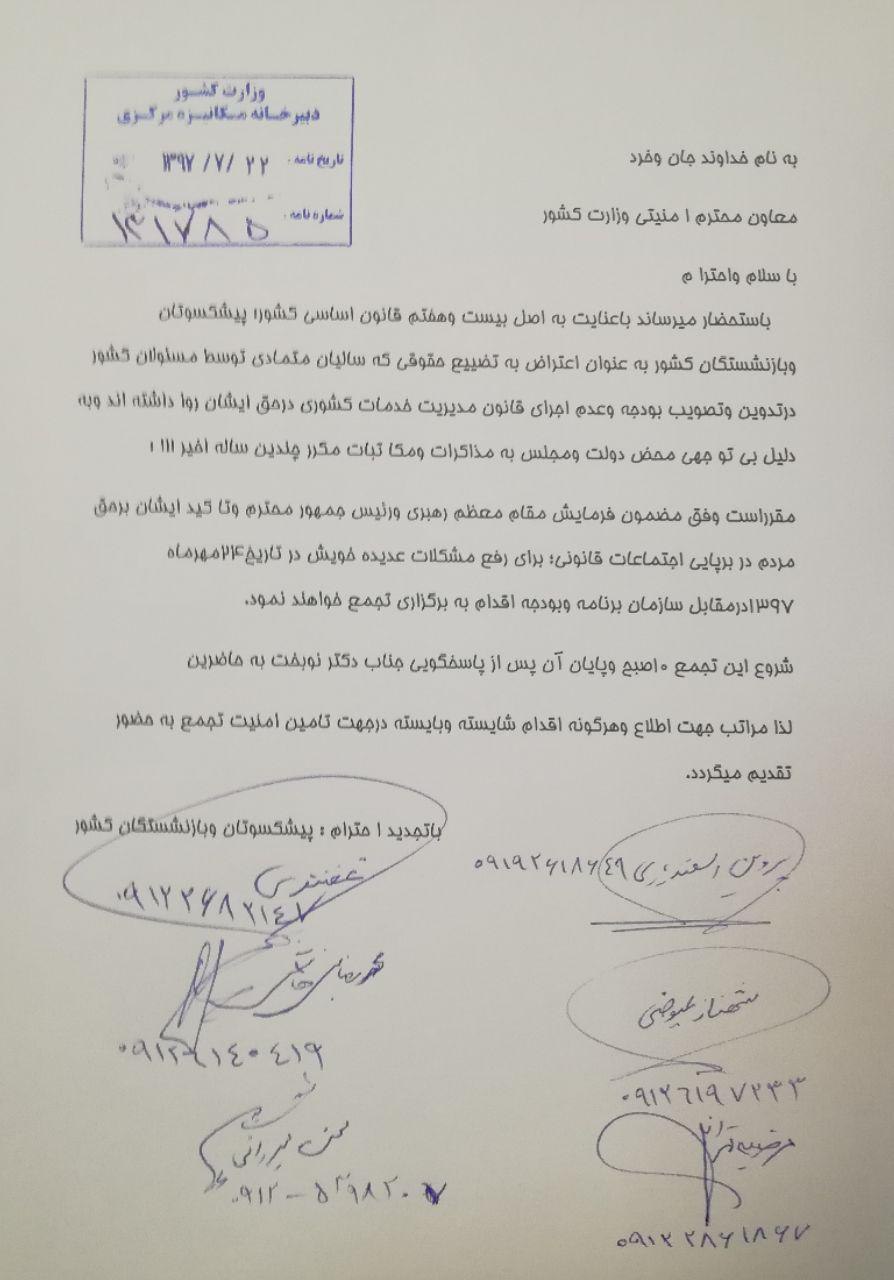 وزارت کشور
دبیرخانه مکانیزه مرکزی
تاریخ نامه: ۱۳۹۷/۷/۲۲
شماره نامه: ۱۳۱۷۸۵
به نام خداوند جان وخرد
معاون محترم ا منیتی وزارت کشور
با سلام واحترا م
باستحضار میرساند باعنایت به اصل بیست وهفتم قانون اساسی کشور؛ پیشکسوتان
وبازنشستگان کشور به عنوان اعتراض به تضییع حقوقی که سالیان متمادی توسط مسئولان کشور
درتدوین وتصویب بودجه وعدم اجرای قانون مدیریت خدمات کشوری درحق ایشان روا داشته اند وبه
دلیل بی تو جهی محض دولت ومجلس به مذاکرات ومکا تبات مکرر چندین ساله اخیر !!! ؛
مقرراست وفق مضمون فرمایش مقام معظم رهبری ورئیس جمهور محترم وتا کید ایشان برحق
مردم در برپایی اجتماعات قانونی؛ برای رفع مشکلات عدیده خویش در تاریخ۲۴مهرماه
۱۳۹۷درمقابل سازمان برنامه وبودجه اقدام به برگزاری تجمع خواهند نمود.
شروع این تجمع ۱۰صبح وپایان آن پس از پاسخگویی جناب دکتر نوبخت به حاضرین
لذا مراتب جهت اطلاع وهرگونه اقدام شایسته وبایسته درجهت تامین امنیت تجمع به حضور
تقدیم میگردد.
باتجدید ا حترام : پیشکسوتان وبازنشستگان کشور
پروین اسفندیاری ۰۹۱۹۲۶۱۸۶۴۹
غضنفری
محمدرضا
۰۹۱۲۹۱۴۰۴۱۹
شهناز عیوضی
۰۹۱۲۶۱۹۷۲۳۳
مرضیه
۰۹۱۲۲۸۶۱۸۶۷